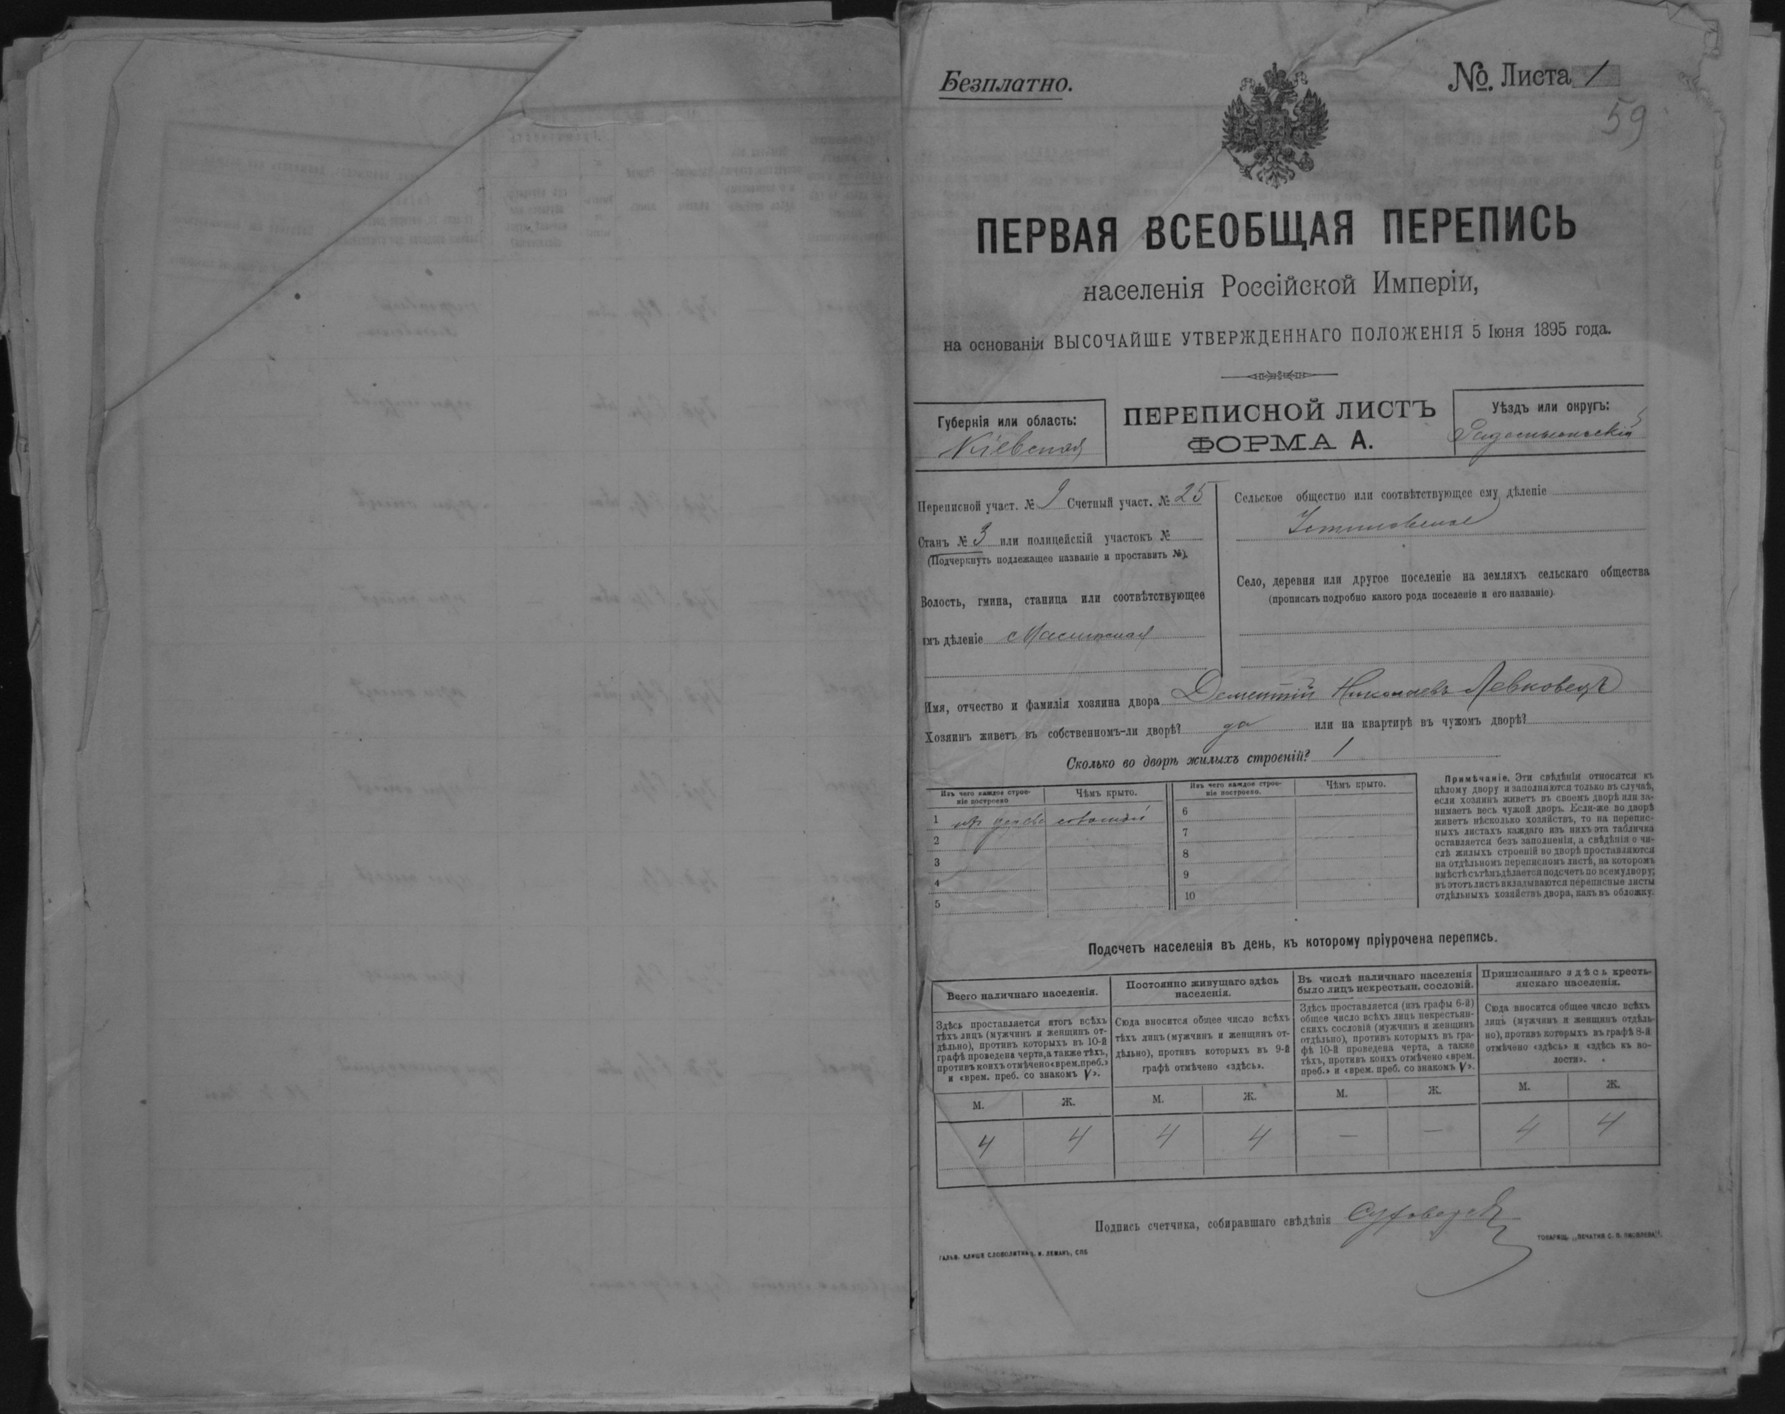 Безплатно.
№ Листа 1
59
ПЕРВАЯ ВСЕОБЩАЯ ПЕРЕПИСЬ
населенія Россійской Имперіи,
на основанія ВЫСОЧАЙШЕ УТВЕРЖДЕННАГО ПОЛОЖЕНІЯ 5 Іюня 1895 года.
Губернія или область:
Кіевская
ПЕРЕПИСНОЙ ЛИСТЪ
ФОРМА А.
Уѣздъ или округъ:
Радомысльскій
Переписной участ. № 9 Счетный участ. № 25
Станъ № 3 или полицейскій участокъ №
(Подчеркнуть подлежащее названіе и проставить №).
Волость, гмина, станица или соотвѣтствующее
имъ дѣленіе
Сельское общество или соотвѣтствующее ему дѣленіе
Село, деревня или другое поселеніе на земляхъ сельскаго общества
(прописать подробно какого рода поселеніе и его названіе)
Имя, отчество и фамилія хозяина двора Дементій Николаевъ Левковецъ
Хозяинъ живетъ въ собственномъ-ли дворѣ? да или на квартирѣ въ чужомъ дворѣ?
Сколько во дворѣ жилыхъ строеній? 1
Изъ чего каждое строе-
ніе построено
Чѣмъ крыто.
Изъ чего каждое строе-
ніе построено.
Чѣмъ крыто.
1 изъ дерева соломой
2
3
4
5
6
7
8
9
10
Примѣчаніе. Эти свѣдѣнія относятся къ
цѣлому двору и заполняются только въ случаѣ,
если хозяинъ живетъ въ своемъ дворѣ или за-
нимаетъ весь чужой дворъ. Если-же во дворѣ
живетъ нѣсколько хозяйствъ, то на перепис-
ныхъ листахъ каждаго изъ нихъ эта табличка
оставляется безъ заполненія, а свѣдѣнія о чи-
слѣ жилыхъ строеній во дворѣ проставляются
на отдѣльномъ переписномъ листѣ, на которомъ
вмѣстѣ съ тѣмъ дѣлается подсчетъ по всему двору;
въ этотъ листъ вкладываются переписные листы
отдѣльныхъ хозяйствъ двора, какъ въ обложку.
Подсчетъ населенія въ день, къ которому пріурочена перепись.
Всего наличнаго населенія.
Здѣсь проставляется итогъ всѣхъ
тѣхъ лицъ (мужчинъ и женщинъ от-
дѣльно), противъ которыхъ въ 10-й
графѣ проведена черта, а также тѣхъ,
противъ коихъ отмѣчено «врем. преб.»
и «врем. преб. со знакомъ V».
Постоянно живущаго здѣсь
населенія.
Сюда вносится общее число всѣхъ
тѣхъ лицъ (мужчинъ и женщинъ от-
дѣльно), противъ которыхъ въ 9-й
графѣ отмѣчено «здѣсь».
Въ числѣ наличнаго населенія
было лицъ некрестьян. сословій.
Здѣсь проставляется (изъ графы 6-й)
общее число всѣхъ лицъ некрестьян-
скихъ сословій (мужчинъ и женщинъ
отдѣльно), противъ которыхъ въ гра-
фѣ 10-й проведена черта, а также
тѣхъ, противъ коихъ отмѣчено «врем.
преб.» и «врем. преб. со знакомъ V».
Приписаннаго здѣсь кресть-
янскаго населенія.
Сюда вносится общее число всѣхъ
лицъ (мужчинъ и женщинъ отдѣль-
но), противъ которыхъ въ графѣ 8-й
отмѣчено «здѣсь» и «здѣсь въ во-
лости».
М. Ж. М. Ж. М. Ж. М. Ж.
4 4 4 4 — — 4 4
Подпись счетчика, собиравшаго свѣдѣнія
ГАЛЬВ. КЛИШЕ СЛОВОЛИТНИ О. И. ЛЕМАНЪ, СПБ